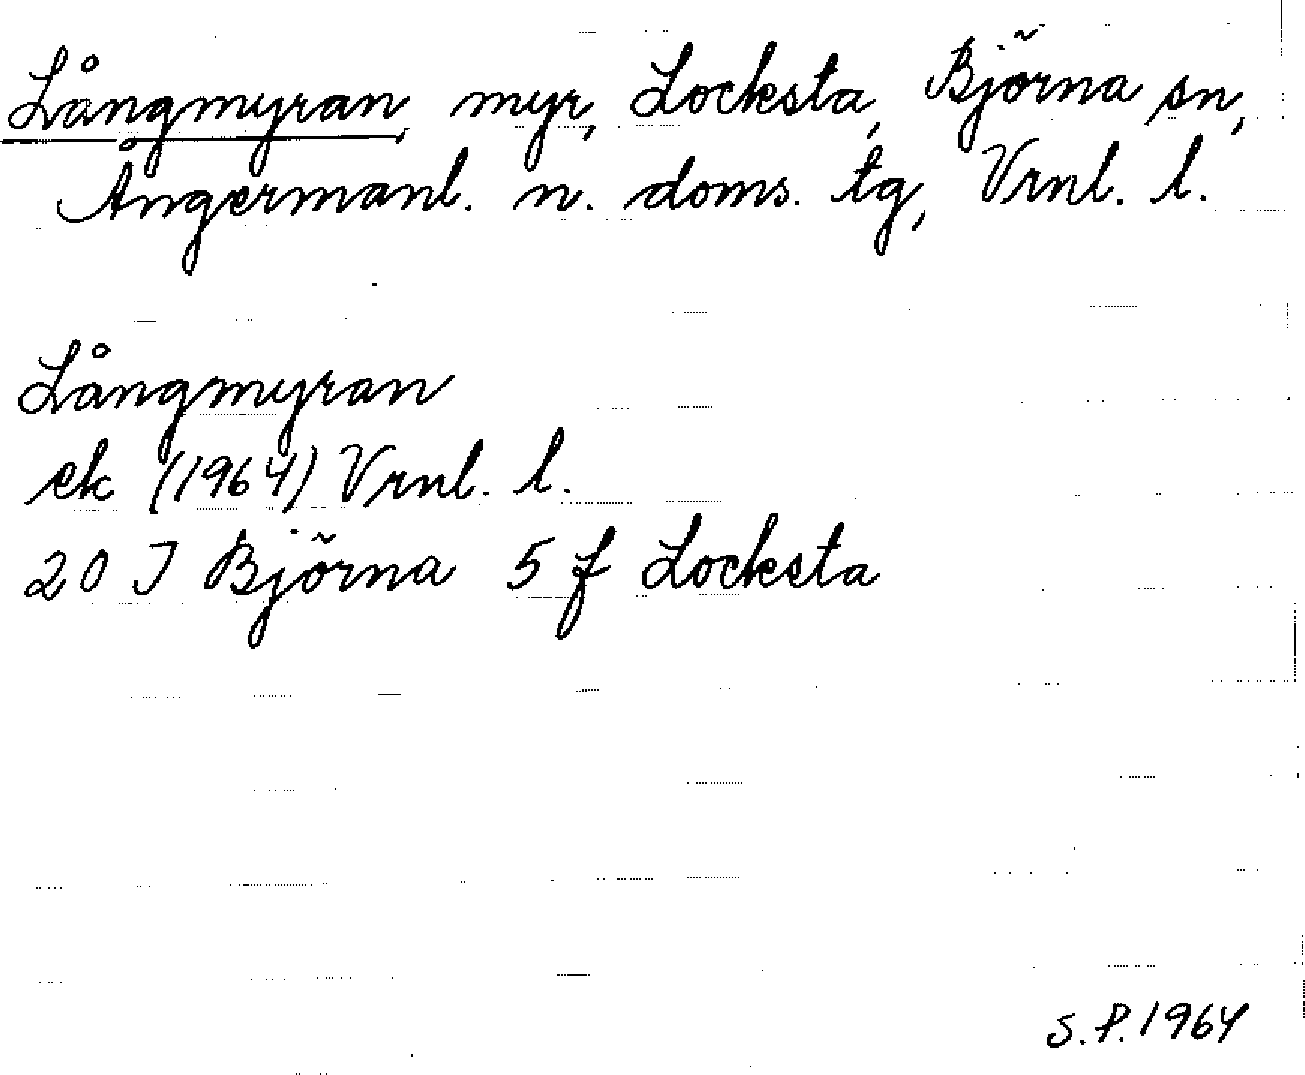 Långmyran, myr, Locksta, Björna sn,
Ångermanl. n. doms. tg, Vrnl. l.
Långmyran
ek (1964) Vrnl. l.
20 J Björna 5 f Locksta
S.P. 1964